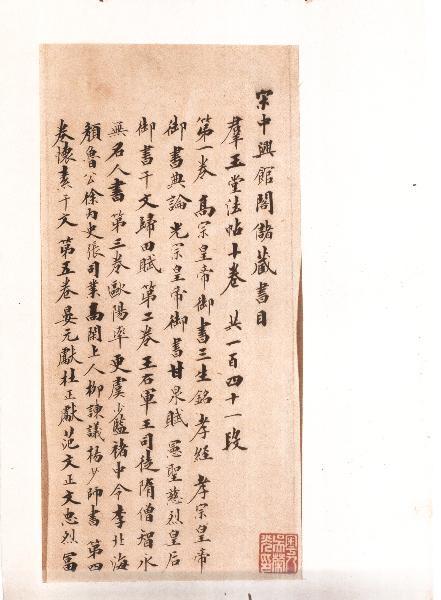 宋中興館閣儲藏書目
羣玉堂法帖十卷 共一百四十一段
第一卷 高宗皇帝御書三生銘 孝經 孝宗皇帝
御書典論 光宗皇帝御書甘泉賦 憲聖慈烈皇后
御書千文歸田賦第二卷王右軍王司徒隋僧智永
無名人書第三卷歐陽率更虞少監褚中令李北海
顏魯公徐內史張司業高閑上人柳諫議楊少師書 第四
卷懷素千文第五卷晏元獻杜正獻范文正文忠烈富